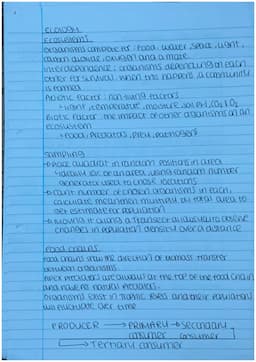 ECOLOGY
Ecosystems
Organisms compete for: Food, water, space, light,
carbon dioxide, oxygen and a mate.
Interdependence: organisms depending on each
other for survival. When this happens, a community
is formed
Abiotic factor: non-living factors
→ light, temperature, moisture, soil pH, CO2 & O2
Biotic factor: the impact of other organisms on an
ecosystem
→ Food, Predators, prey, pathogens
Sampling
→ Place quadrat in random positions in area
→ divide or an area, using random number
generator used to choose locations
→ Count number of chosen organisms in each,
calculate mean then multiply by total area to
get estimate for population
→ Moving it along a transect allows you to observe
changes in population density over a distance
Food chains
Food chains show the direction of biomass transfer
between organisms
Apex predators are always at the top of the food chain
and have no natural predators
Organisms exist in trophic levels and their population
will fluctuate over time
PRODUCER → PRIMARY → Secondary
consumer consumer
→ Tertiary consumer